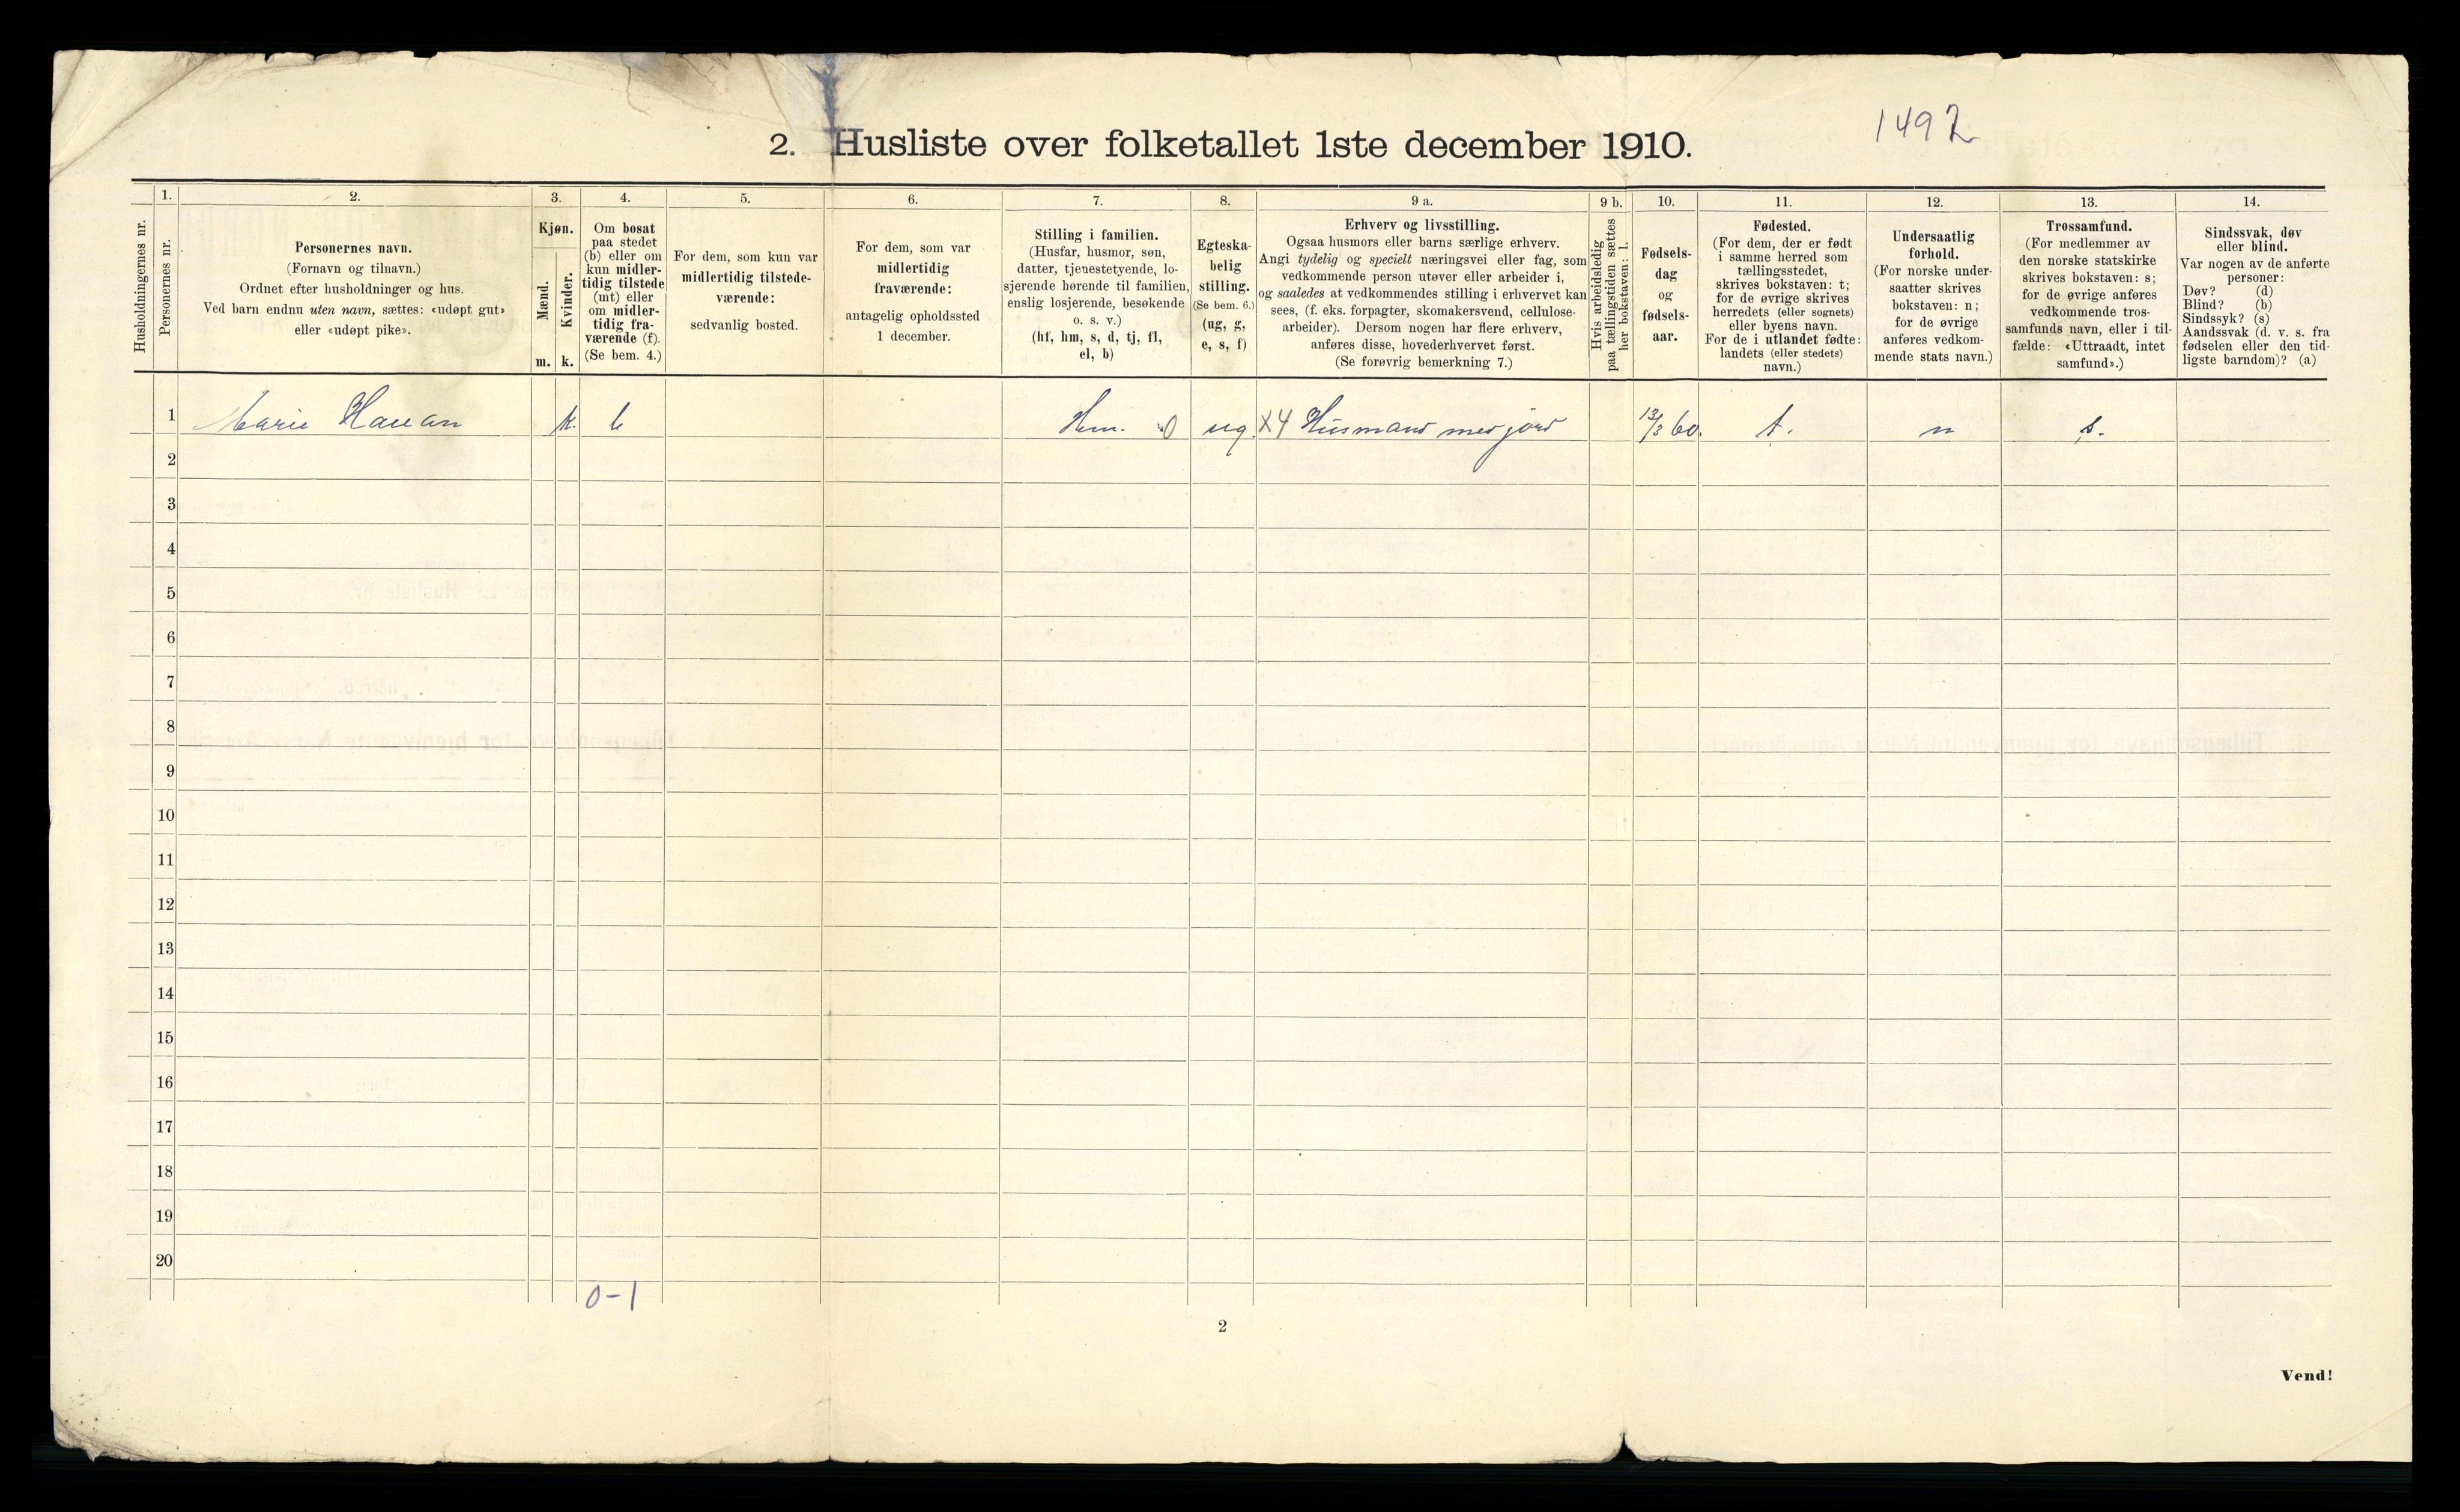 1492
2. Husliste over folketallet 1ste december 1910.
Husholdningernes nr.
1.
Personernes nr.
2.
Personernes navn.
(Fornavn og tilnavn.)
Ordnet efter husholdninger og hus.
Ved barn endnu uten navn, sættes: «udøpt gut»
eller «udøpt pike».
3.
Kjøn.
Mænd.
Kvinder.
m. k.
4.
Om bosat
paa stedet
(b) eller om
kun midler-
tidig tilstede
(mt) eller
om midler-
tidig fra-
værende (f).
(Se bem. 4.)
5.
For dem, som kun var
midlertidig tilstede-
værende:
sedvanlig bosted.
6.
For dem, som var
midlertidig
fraværende:
antagelig opholdssted
1 december.
7.
Stilling i familien.
(Husfar, husmor, søn,
datter, tjenestetyende, lo-
sjerende hørende til familien,
enslig losjerende, besøkende
o. s. v.)
(hf, hm, s, d, tj, fl,
el, b)
8.
Egteska-
belig
stilling.
(Se bem. 6.)
(ug, g,
e, s, f)
9 a.
Erhverv og livsstilling.
Ogsaa husmors eller barns særlige erhverv.
Angi tydelig og specielt næringsvei eller fag, som
vedkommende person utøver eller arbeider i,
og saaledes at vedkommendes stilling i erhvervet kan
sees, (f. eks. forpagter, skomakersvend, cellulose-
arbeider). Dersom nogen har flere erhverv,
anføres disse, hovederhvervet først.
(Se forøvrig bemerkning 7.)
9 b.
Hvis arbeidsledig
paa tællingstiden sættes
her bokstaven: l.
10.
Fødsels-
dag
og
fødsels-
aar.
11.
Fødested.
(For dem, der er født
i samme herred som
tællingsstedet,
skrives bokstaven: t;
for de øvrige skrives
herredets (eller sognets)
eller byens navn.
For de i utlandet fødte:
landets (eller stedets)
navn.)
12.
Undersaatlig
forhold.
(For norske under-
saatter skrives
bokstaven: n;
for de øvrige
anføres vedkom-
mende stats navn.)
13.
Trossamfund.
(For medlemmer av
den norske statskirke
skrives bokstaven: s;
for de øvrige anføres
vedkommende tros-
samfunds navn, eller i til-
fælde: «Uttraadt, intet
samfund».)
14.
Sindssvak, døv
eller blind.
Var nogen av de anførte
personer:
Døv? (d)
Blind? (b)
Sindssyk? (s)
Aandssvak (d. v. s. fra
fødselen eller den tid-
ligste barndom)? (a)
1 Marie Hauan k. b Hm. 0 ug X4 Husmand med jord 13/3 60. t. n s.
2
3
4
5
6
7
8
9
10
11
12
13
14
15
16
17
18
19
20
0-1
2
Vend!